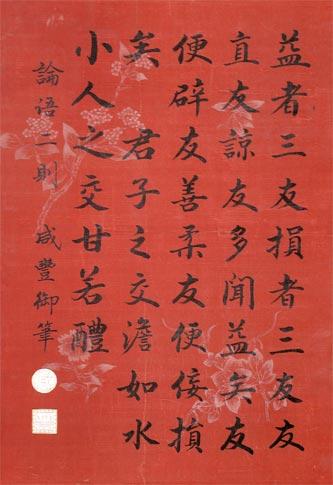 益者三友損者三友友
直友諒友多聞益矣友
便辟友善柔友便佞損
矣　君子之交澹如水
小人之交甘若醴
論語二則　咸豐御筆